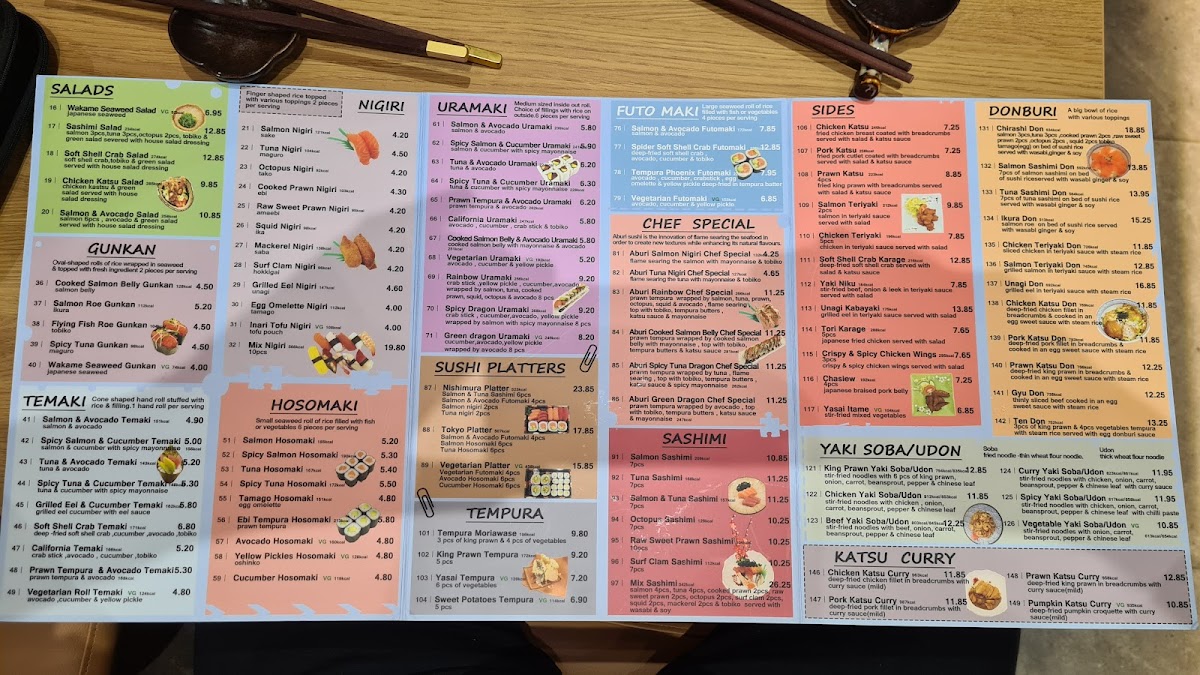 SALADS
16 Wakame Seaweed Salad VG 6.95
japanese seaweed
17 Sashimi Salad 12.85
salmon 3pcs,tuna 3pcs,octopus 2pcs, tobiko &
green salad severed with house salad dressing
18 Soft Shell Crab Salad 12.85
soft shell crab,tobiko & green salad
served with house salad dressing
19 Chicken Katsu Salad 9.85
chicken kastsu & green
salad served with house
salad dressing
20 Salmon & Avocado Salad 10.85
salmon 6pcs , avocado & green salad
served with house salad dressing
GUNKAN
Oval-shaped rolls of rice wrapped in seaweed
& topped with fresh ingredient 2 pieces per serving
36 Cooked Salmon Belly Gunkan 4.50
salmon belly
37 Salmon Roe Gunkan 5.20
Ikura
38 Flying Fish Roe Gunkan 4.50
tobiko
39 Spicy Tuna Gunkan 4.50
maguro
40 Wakame Seaweed Gunkan VG 4.00
japanese seaweed
TEMAKI
Cone shaped hand roll stuffed with
rice & filling.1 hand roll per serving
41 Salmon & Avocado Temaki 4.90
salmon & avocado
42 Spicy Salmon & Cucumber Temaki 5.00
salmon & cucumber with spicy mayonnaise
43 Tuna & Avocado Temaki 5.20
tuna & avocado
44 Spicy Tuna & Cucumber Temaki 5.30
tuna & cucumber with spicy mayonnaise
45 Grilled Eel & Cucumber Temaki 5.80
grilled eel cucumber with eel sauce
46 Soft Shell Crab Temaki 6.80
deep fried soft shell crab ,cucumber ,avocado ,tobiko
47 California Temaki 5.20
crab stick ,avocado , cucumber ,tobiko
48 Prawn Tempura & Avocado Temaki 5.30
prawn tempura & avocado
49 Vegetarian Roll Temaki VG 4.80
avocado ,cucumber & yellow pickle
NIGIRI
Finger shaped rice topped
with various toppings 2 pieces
per serving
21 Salmon Nigiri 4.20
sake
22 Tuna Nigiri 4.50
maguro
23 Octopus Nigiri 4.20
tako
24 Cooked Prawn Nigiri 4.30
ebi
25 Raw Sweet Prawn Nigiri 4.20
amaebi
26 Squid Nigiri 4.20
ika
27 Mackerel Nigiri 4.20
saba
28 Surf Clam Nigiri 4.20
hokkigai
29 Grilled Eel Nigiri 4.60
unagi
30 Egg Omelette Nigiri 4.00
tamago
31 Inari Tofu Nigiri VG 4.00
tofu pouch
32 Mix Nigiri 19.80
10pcs
HOSOMAKI
Small seaweed roll of rice filled with fish
or vegetables 6 pieces per serving
51 Salmon Hosomaki 5.20
52 Spicy Salmon Hosomaki 5.30
53 Tuna Hosomaki 5.40
54 Spicy Tuna Hosomaki 5.50
55 Tamago Hosomaki 4.80
egg omelette
56 Ebi Tempura Hosomaki 5.80
prawn tempura
57 Avocado Hosomaki VG 4.80
58 Yellow Pickles Hosomaki VG 4.80
oshinko
59 Cucumber Hosomaki VG 4.80
URAMAKI
Medium sized inside out roll.
Choice of fillings with rice on
outside.8 pieces per serving
61 Salmon & Avocado Uramaki 5.80
salmon & avocado
62 Spicy Salmon & Cucumber Uramaki 5.90
salmon & cucumber with spicy mayonnaise
63 Tuna & Avocado Uramaki 6.20
tuna & avocado
64 Spicy Tuna & Cucumber Uramaki 6.30
tuna & cucumber with spicy mayonnaise
65 Prawn Tempura & Avocado Uramaki 6.20
prawn tempura & avocado
66 California Uramaki 5.80
avocado , cucumber , crab stick & tobiko
67 Cooked Salmon Belly & Avocado Uramaki 5.80
cooked salmon belly with mayonnaise & avocado
68 Vegetarian Uramaki VG 5.20
avocado , cucumber & yellow pickle
69 Rainbow Uramaki 9.20
crab stick ,yellow pickle , cucumber
,avocado wrapped in salmon, tuna, cooked
prawn, squid, octopus & avocado 8 pcs
70 Spicy Dragon Uramaki 9.20
crab stick , cucumber,avocado, yellow pickle
wrapped by salmon with spicy mayonnaise 8 pcs
71 Green dragon Uramaki VG 8.20
cucumber,avocado,yellow pickle
wrapped by avocado 8 pcs
SUSHI PLATTERS
87 Nishimura Platter 23.85
Salmon & Tuna Sashimi 6pcs
Salmon & Avocado Futomaki 4pcs
Salmon nigiri 2pcs
Tuna nigiri 2pcs
88 Tokyo Platter 17.85
Salmon & Avocado Futomaki 4pcs
Salmon Hosomaki 6pcs
Tuna Hosomaki 6pcs
89 Vegetarian Platter VG 15.85
Vegetarian Futomaki 4pcs
Avocado Hosomaki 6pcs
Cucumber Hosomaki 6pcs
TEMPURA
101 Tempura Moriawase 9.80
3 pcs of king prawn & 4 pcs of vegetables
102 King Prawn Tempura 9.20
5 pcs
103 Yasai Tempura VG 7.20
8 pcs of vegetables
104 Sweet Potatoes Tempura VG 6.90
5 pcs
FUTO MAKI
Large seaweed roll of rice
filled with fish or vegetables
4 pieces per serving
76 Salmon & Avocado Futomaki 7.85
salmon & avocado
77 Spider Soft Shell Crab Futomaki 12.85
deep-fried soft shell crab ,
avocado, cucumber & tobiko
78 Tempura Phoenix Futomaki 7.95
avocado , cucumber, crabstick , egg
omelette & yellow pickle deep-fried in tempura batter
79 Vegetarian Futomaki VG 6.85
avocado, cucumber & yellow pickle
CHEF SPECIAL
Aburi sushi is the innovation of flame searing the seafood in
order to create new textures while enhancing its natural flavours.
81 Aburi Salmon Nigiri Chef Special 4.25
flame searing the salmon with mayonnaise & tobiko
82 Aburi Tuna Nigiri Chef Special 4.65
flame searing tuna with mayonnaise & tobiko
83 Aburi Rainbow Chef Special 11.25
prawn tempura wrapped by salmon, tuna, prawn,
octopus, squid & avocado , flame searing
, top with tobiko, tempura butters ,
katsu sauce & mayonnaise
84 Aburi Cooked Salmon Belly Chef Special 11.25
prawn tempura wrapped by cooked salmon
belly with mayonnaise , top with tobiko,
tempura butters & katsu sauce
85 Aburi Spicy Tuna Dragon Chef Special 11.25
prawn tempura wrapped by tuna , flame
searing , top with tobiko, tempura butters ,
katsu sauce & spicy mayonnaise
86 Aburi Green Dragon Chef Special 11.25
prawn tempura wrapped by avocado , top
with tobiko, tempura butters , katsu sauce
& mayonnaise
SASHIMI
91 Salmon Sashimi 10.85
7pcs
92 Tuna Sashimi 11.85
7pcs
93 Salmon & Tuna Sashimi 11.85
7pcs
94 Octopus Sashimi 10.25
7pcs
95 Raw Sweet Prawn Sashimi 10.25
10pcs
96 Surf Clam Sashimi 10.25
7pcs
97 Mix Sashimi 26.25
salmon 4pcs, tuna 4pcs, cooked prawn 2pcs, raw
sweet prawn 2pcs, octopus 2pcs, surf clam 2pcs,
squid 2pcs, mackerel 2pcs & tobiko served with
wasabi & soy
SIDES
106 Chicken Katsu 7.25
fried chicken breast coated with breadcrumbs
served with salad & katsu sauce
107 Pork Katsu 7.25
fried pork cutlet coated with breadcrumbs
served with salad & katsu sauce
108 Prawn Katsu 8.85
4pcs
fried king prawn with breadcrumbs served
with salad & katsu sauce
109 Salmon Teriyaki 9.65
5pcs
salmon in teriyaki sauce
served with salad
110 Chicken Teriyaki 7.65
5pcs
chicken in teriyaki sauce served with salad
111 Soft Shell Crab Karage 12.85
deep fried soft shell crab served with
salad & katsu sauce
112 Yaki Niku 7.85
stir-fried beef, onion & leek in teriyaki sauce
served with salad
113 Unagi Kabayaki 13.85
grilled eel in teriyaki sauce served with salad
114 Tori Karage 7.65
5pcs
japanese fried chicken served with salad
115 Crispy & Spicy Chicken Wings 7.65
5pcs
116 Chasiew 7.25
4pcs
japanese braised pork belly
117 Yasai Itame VG 6.85
stir-fried mixed vegetables
DONBURI
A big bowl of rice
with various toppings
131 Chirashi Don 18.85
salmon 3pcs,tuna 3pcs ,cooked prawn 2pcs ,raw sweet
prawn 2pcs ,octopus 2pcs , squid 2pcs tobiko &
tamago(egg) on bed of sushi rice
served with wasabi,ginger & soy
132 Salmon Sashimi Don 13.85
7pcs of salmon sashimi on bed of
sushi riceserved with wasabi ginger & soy
133 Tuna Sashimi Don 13.95
7pcs of tuna sashimi on bed of sushi rice
served with wasabi ginger & soy
134 Ikura Don 15.25
salmon roe on bed of sushi rice
served with wasabi ginger & soy
135 Chicken Teriyaki Don 11.85
sliced chicken teriyaki sauce with steam rice
136 Salmon Teriyaki Don 12.85
grilled salmon in teriyaki sauce with steam rice
137 Unagi Don 16.85
grilled eel in teriyaki sauce with steam rice
138 Chicken Katsu Don 11.85
deep-fried chicken fillet in
breadcrumbs & cooked in an
egg sweet sauce with steam rice
139 Pork Katsu Don 11.85
deep-fried pork fillet in breadcrumbs &
cooked in an egg sweet sauce with steam rice
140 Prawn Katsu Don 12.25
deep-fried king prawn in breadcrumbs &
cooked in an egg sweet sauce with steam rice
141 Gyu Don 12.25
thinly sliced beef cooked in an egg
sweet sauce with steam rice
142 Ten Don 13.25
3pcs of king prawn & 4pcs vegetables tempura
with steam rice served with egg donburi sauce
YAKI SOBA/UDON
Soba
fried noodle -thin wheat flour noodle.
Udon
thick wheat flour noodle
121 King Prawn Yaki Soba/Udon 12.85
stir-fried noodles with 6 pcs of king prawn,
onion, carrot, beansprout, pepper & chinese leaf
122 Chicken Yaki Soba/Udon 11.85
stir-fried noodles with chicken, onion,
carrot, beansprout, pepper & chinese leaf
123 Beef Yaki Soba/Udon 12.25
stir-fried noodles with beef, onion, carrot,
beansprout, pepper & chinese leaf
124 Curry Yaki Soba/Udon 11.95
stir-fried noodles with chicken, onion, carrot,
beansprout, pepper & chinese leaf with curry sauce
125 Spicy Yaki Soba/Udon 11.95
stir-fried noodles with chicken, onion, carrot,
beansprout, pepper & chinese leaf with chilli paste
126 Vegetable Yaki Soba/Udon VG 10.85
stir-fried noodles with onion, carrot,
beansprout, pepper & chinese leaf
KATSU CURRY
146 Chicken Katsu Curry 11.85
deep-fried chicken fillet in breadcrumbs with
curry sauce(mild)
147 Pork Katsu Curry 11.85
deep-fried pork fillet in breadcrumbs with
curry sauce(mild)
148 Prawn Katsu Curry 12.85
deep-fried king prawn in breadcrumbs with
curry sauce(mild)
149 Pumpkin Katsu Curry VG 10.85
deep-fried pumpkin croquette with curry
sauce(mild)